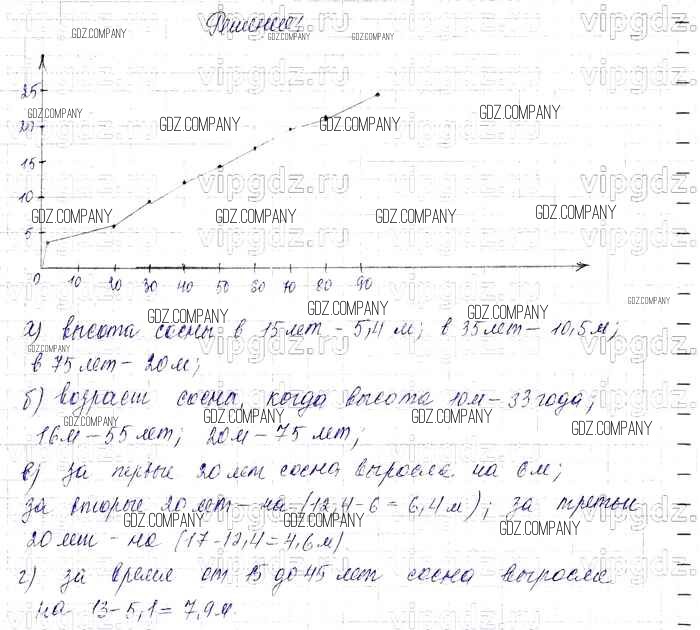 Решение:
25
20
15
10
5
0 10 20 30 40 50 60 70 80 90
а) высота сосны в 15 лет - 5,4 м; в 35 лет - 10,5 м;
в 75 лет - 20 м;
б) возраст сосны, когда высота 10 м - 33 года;
16 м - 55 лет; 20 м - 75 лет;
в) за первые 20 лет сосна выросла на 6 м;
за вторые 20 лет - на (12,4 - 6 = 6,4 м); за третьи
20 лет - на (17 - 12,4 = 4,6 м)
г) за время от 15 до 45 лет сосна выросла
на 13 - 5,1 = 7,9 м.
GDZ.COMPANY
vipgdz.ru